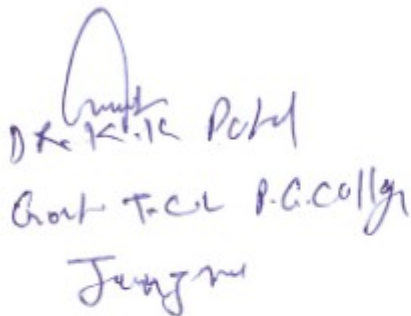 Dr. K.K Patel
Govt T.C.L P.G. College
Janjgir